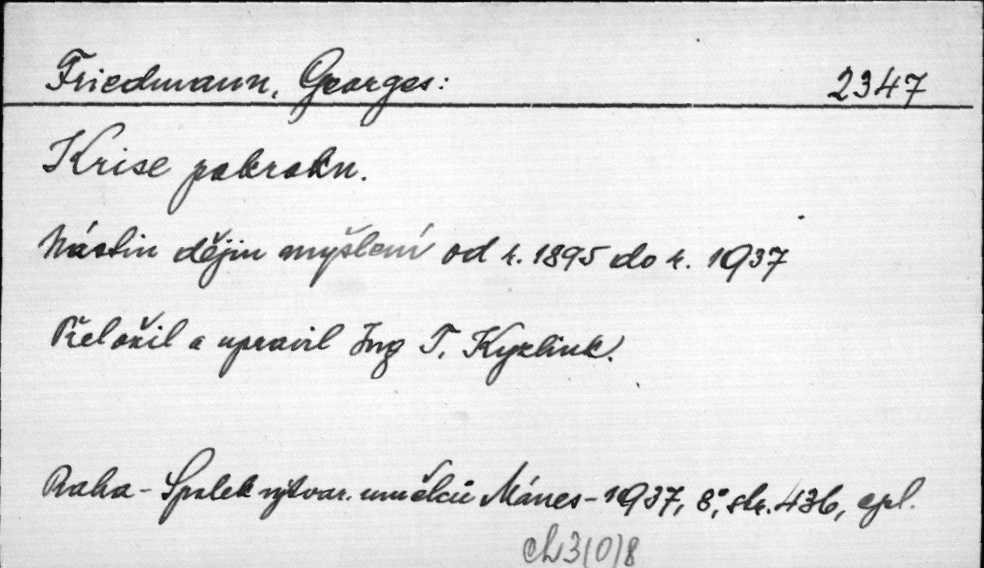 Friedmann, Georges: 2347
Krise pokroku.
Nástin dějin myšlení od r. 1895 do r. 1937
Přeložil a upravil Ing T. Kyzlink.
Praha - Spolek výtvar. umělců Mánes - 1937, 8°, str. 436, cpl.
ch 3(0)8